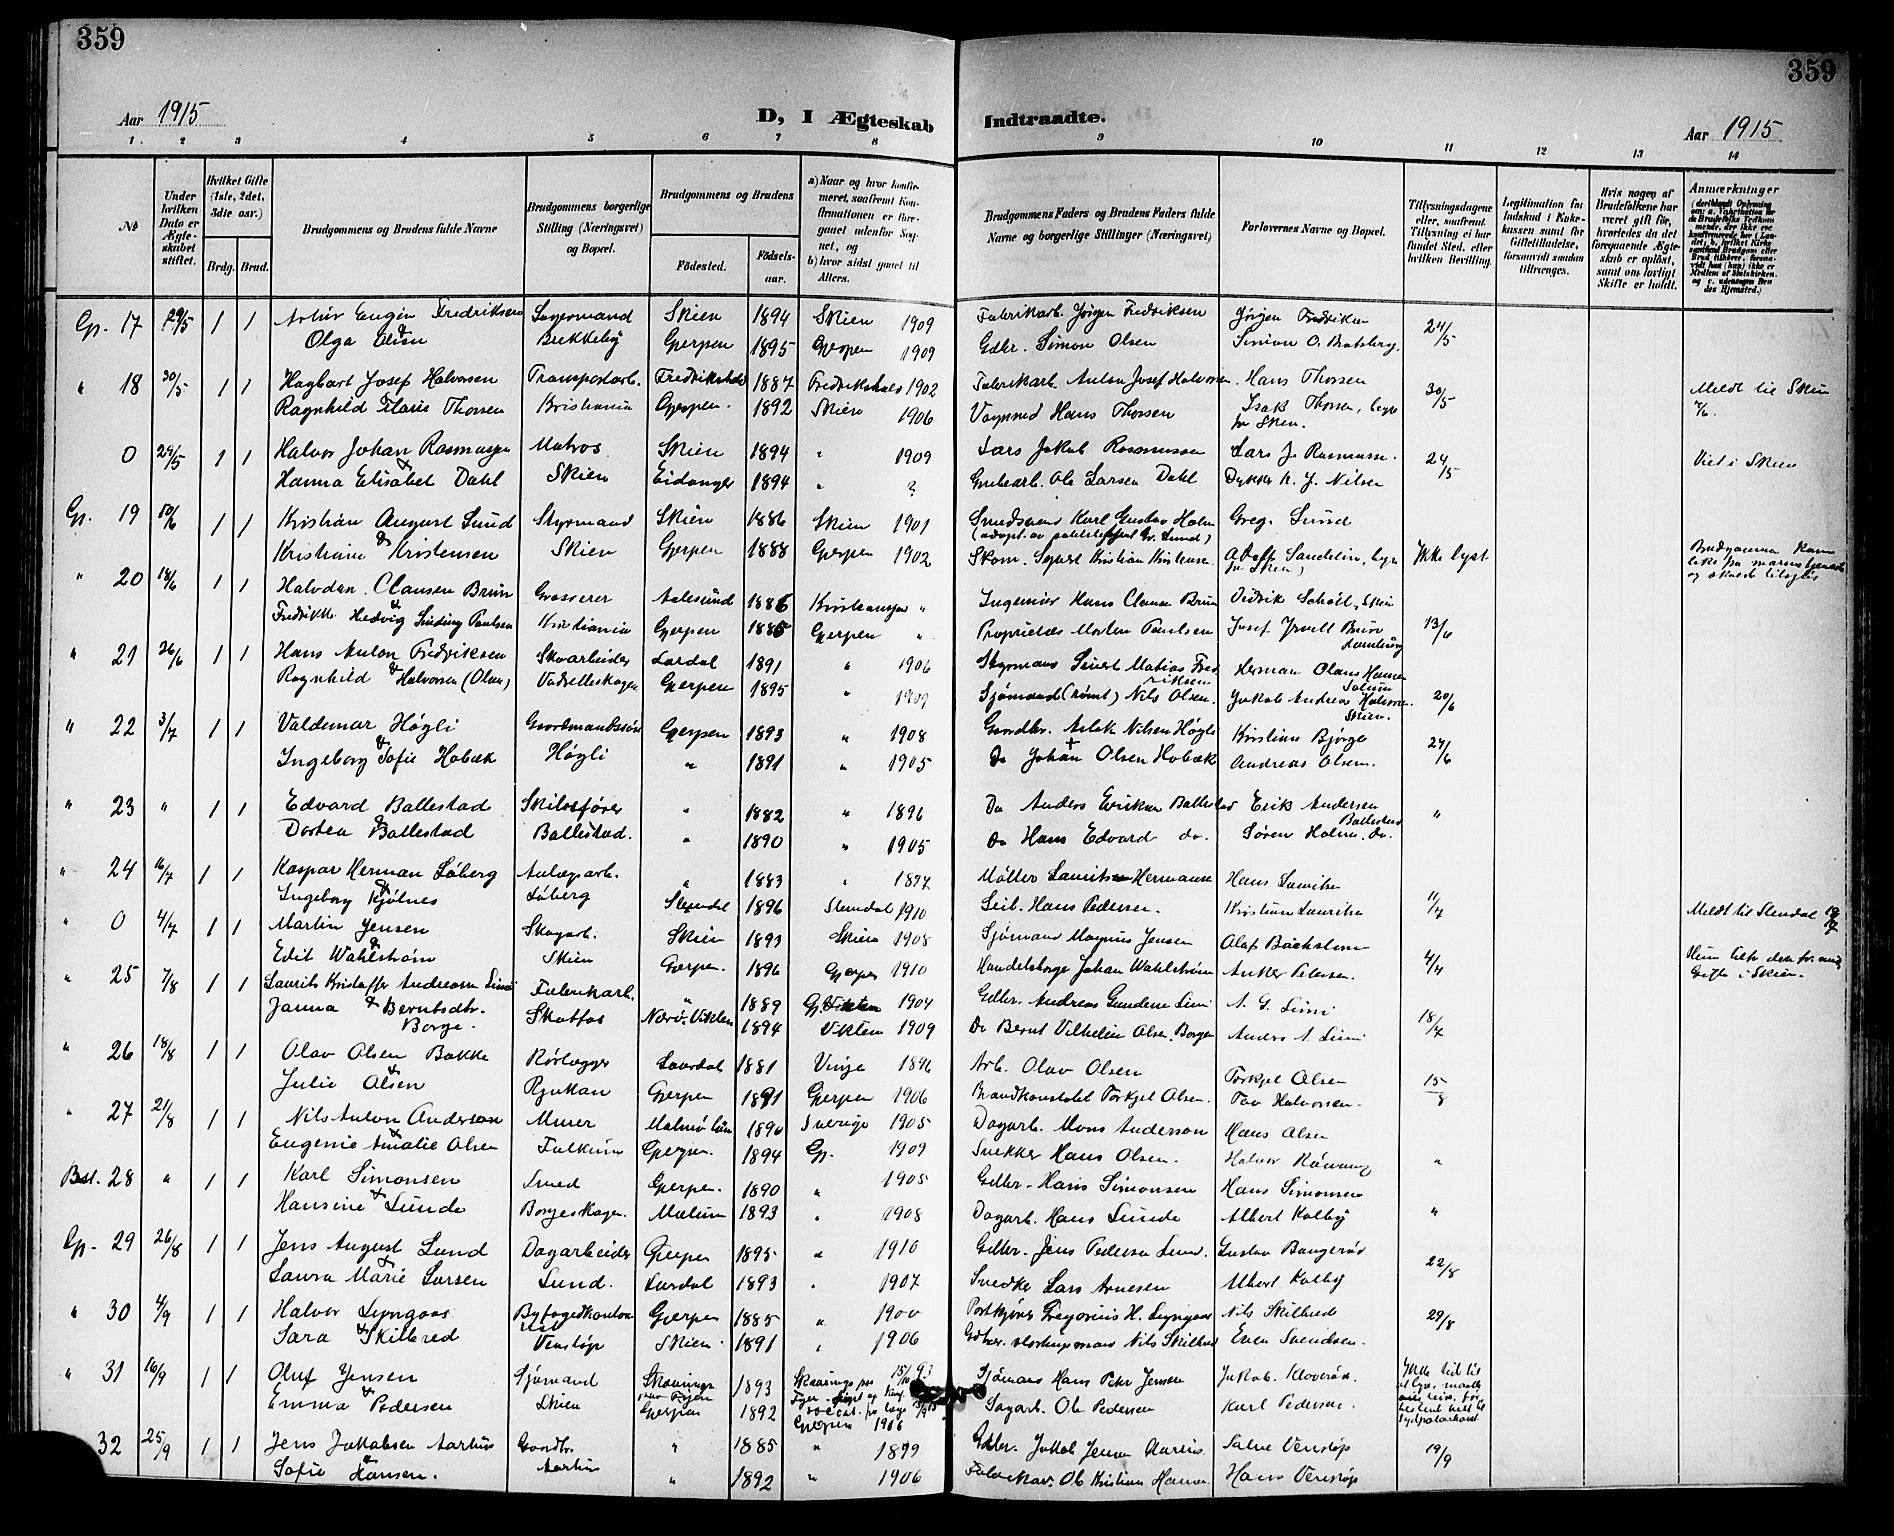 359
359
Aar 1915
D, I Ægteskab Indtraadte.
Aar 1915
1. 2 3 4 5 6 7 8 9 10 11 12 13 14
No
Under hvilken Dato er Ægteskabet stiftet.
Hvilket Gifte (1ste, 2det, 3dte osv.)
Brdg. Brud.
Brudgommens og Brudens fulde Navne
Brudgommens borgerlige Stilling (Næringsvei) og Bopæl.
Brudgommens og Brudens
Fødested. Fødselsaar.
a) Naar og hvor konfirmeret, saafremt Konfirmationen er foregaaet udenfor Sognet, og
b) hvor sidst gaaet til Alters.
Brudgommens Faders og Brudens Faders fulde Navne og borgerlige Stillinger (Næringsvei)
Forlovernes Navne og Bopæl.
Tillysningsdagene eller, saafremt Tillysning ei har fundet Sted, efter hvilken Bevilling.
Legitimation for Indskud i Enkekassen samt for Giftetilladelse, forsaavidt saadan tiltrænges.
Hvis nogen af Brudefolkene har været gift før, hvorledes da det foregaaende Ægteskab er opløst, samt om lovligt Skifte er holdt.
Anmærkninger
Gp. 17 29/5 1 1 Artur Eugin Fredriksen Lagermand Skien 1894 Skien 1909 Fabrikarb. Jørgen Fredriksen Jørgen Fredriksen 24/5
& Olga Olsen Brekkeby Gjerpen 1895 Gjerpen 1909 Gdbr. Simon Olsen Simon O. Bratsberg.
" 18 30/5 1 1 Hagbart Josef Halvorsen Transportarb. Fredrikshald 1887 Fredrikshald 1902 Fabrikarb. Anton Josef Halvorsen Hans Thorsen 30/5 Meldt til Skien
Ragnhild Marie Thorsen Kristiania Gjerpen. 1892 Skien 1906 Vognmd Hans Thorsen Isak Thorsen, begge
fr Skien.
0 24/5 1 1 Halvor Johan Rasmussen Matros Skien 1894 " 1909 Lars Jakob Rasmussen Lars J. Rasmussen 24/5 Viet i Skien
& Hanna Elisabet Dahl Skien Eidanger 1894 " ? Grubearb. Ole Larsen Dahl Dykker N. J. Nilsen
Gp. 19 10/6 1 1 Kristian August Lund Styrmand Skien 1886 Skien 1901 Smedsvend Karl Gustav Holm Greg. Lund
& Kristiane Kristensen Skien Gjerpen 1888 Gjerpen 1902 Skom. Sigurd Kristian Kristensen Adolf Sandelin, begge
fr Skien) Ikke lyst
" 20 18/6 1 1 Halvdan Clausen Bruun Grosserer Aalesund 1886 Kristiansand " Ingeniør Hans Clausen Bruun Didrik Schøll, Skien
& Fredrikke Hedvig Sinding Paulsen Kristiania Gjerpen 1885 Gjerpen " Proprietær Morten Paulsen Josef Bruun 13/6
" 21 26/6 1 1 Hans Anton Fredriksen Skoarbeider Lardal 1891 " 1906 Styrmand Sivert Matias Fredriksen Herman Olaus Hansen
Solum
& Ragnhild Halvorsen (Olsen) Gjerpen 1895 " 1909 Sjømand (rømt) Nils Olsen. Jakob Andreas Halvorsen. 20/6
Skien.
" 22 3/7 1 1 Valdemar Høgli Gaardmandssøn Gjerpen 1893 " 1908 Gaardbr. Aslak Nilsen Høgli Kristian Bjørge 27/6
& Ingeborg Sofie Hobæk Høgli " 1891 " 1905 Do Johan Olsen Hobæk Andreas Olsen.
" 23 " 1 1 Edvard Ballestad Skiløsfører " 1882 " 1896 Do Anders Eriksen Ballestad Erik Andersen "
Ballestad
& Dortea Ballestad Ballestad. " 1890 " 1905 Do Hans Edvard do. Søren Holm. do.
" 24 16/7 1 1 Kaspar Herman Løberg Anlægsarb. " 1883 " 1897 Møller Laurits Hermansen Hans Lauritsen
& Ingeborg Kjølnes Løberg Slemdal 1896 Slemdal 1910 Seil. Hans Pedersen. Kristian Lauritsen 11/7 Meldt til Slemdal
" 0 4/7 1 1 Martin Jensen Skogarb. Skien 1893 Skien 1908 Sjømand Magnus Jensen Olaf Backstrøm
& Edit Wahlstrøm Skien Gjerpen. 1896 Gjerpen 1910 Handelsborger Johan Wahlstrøm Anker Petersen. 4/7
Gifte i Skien.
" 25 7/8 1 1 Laurits Kristoffer Andreassen Limi Fabrikarb. " 1889 Gp 1904 Gdbr. Andreas Gundersen Limi A. G. Limi
& Janna Berntsdtr. Borge. Skotfos Nærø, Vikten 1894 Vikten 1909 Do Bernt Vilhelm Olsen Borgen Anders A Limi 18/7
" 26 18/8 1 1 Olav Olsen Bakke Rørlægger Laardal 1881 Vinje 1896 Arb. Olav Olsen Torkjel Olsen 15/8
& Julie Olsen Rjukan Gjerpen 1891 Gjerpen 1906 Brandkonstabel Torkjel Olsen. Tov Halvorsen.
" 27 21/8 1 1 Nils Anton Anderson Murer Malmø län 1890 Sverige 1905 Dagarb. Mons Anderson Hans Olsen
& Eugenie Amalie Olsen Falkum Gjerpen. 1894 Gp. 1909 Snekker Hans Olsen. Halvor Rønning "
Bsl. 28 " 1 1 Karl Simonsen Smed Gjerpen. 1890 " 1905 Gdbr. Hans Simonsen Hans Simonsen
& Hansine Lunde Borgeskogen. Mælum 1893 " 1908 Dagarb. Hans Lunde Albert Kolby "
Gp. 29 26/8 1 1 Jens August Lund Dagarbeider Gjerpen 1895 " 1910 Gdbr. Jens Pedersen Lund. Gustav Bangerød 22/8
& Laura Marie Larsen Lund. Lardal 1893 " 1907 Snedker Lars Arnesen Albert Kolby
" 30 4/9 1 1 Halvor Lyngaas Byfogedkontor Gjerpen 1885 " 1900 Gregorius H. Lyngaas Nils Skilbred 29/8
& Sara Skilbred Venstøp Skien 1891 " 1906 Gdbr. stortingsmand Nils Skilbred Even Svendsen.
" 31 16/9 1 1 Oluf Jensen Sjømand Skaarings 1893 Sjømand Hans Peter Jensen Jakob Kloverød.
& Emma Pedersen Skien Gjerpen 1892 Gjerpen 1906 Sagarb. Ole Pedersen Karl Pedersen.
32 25/9 1 1 Jens Jakobsen Aarhus Gaardbr. " 1885 " 1899 Gdbr. Jakob Jensen Aarhus. Salve Venstøp 19/9
& Sofie Hansen. Aarhus " 1892 " 1906 Ole Kristian Hansen Hans Venstøp